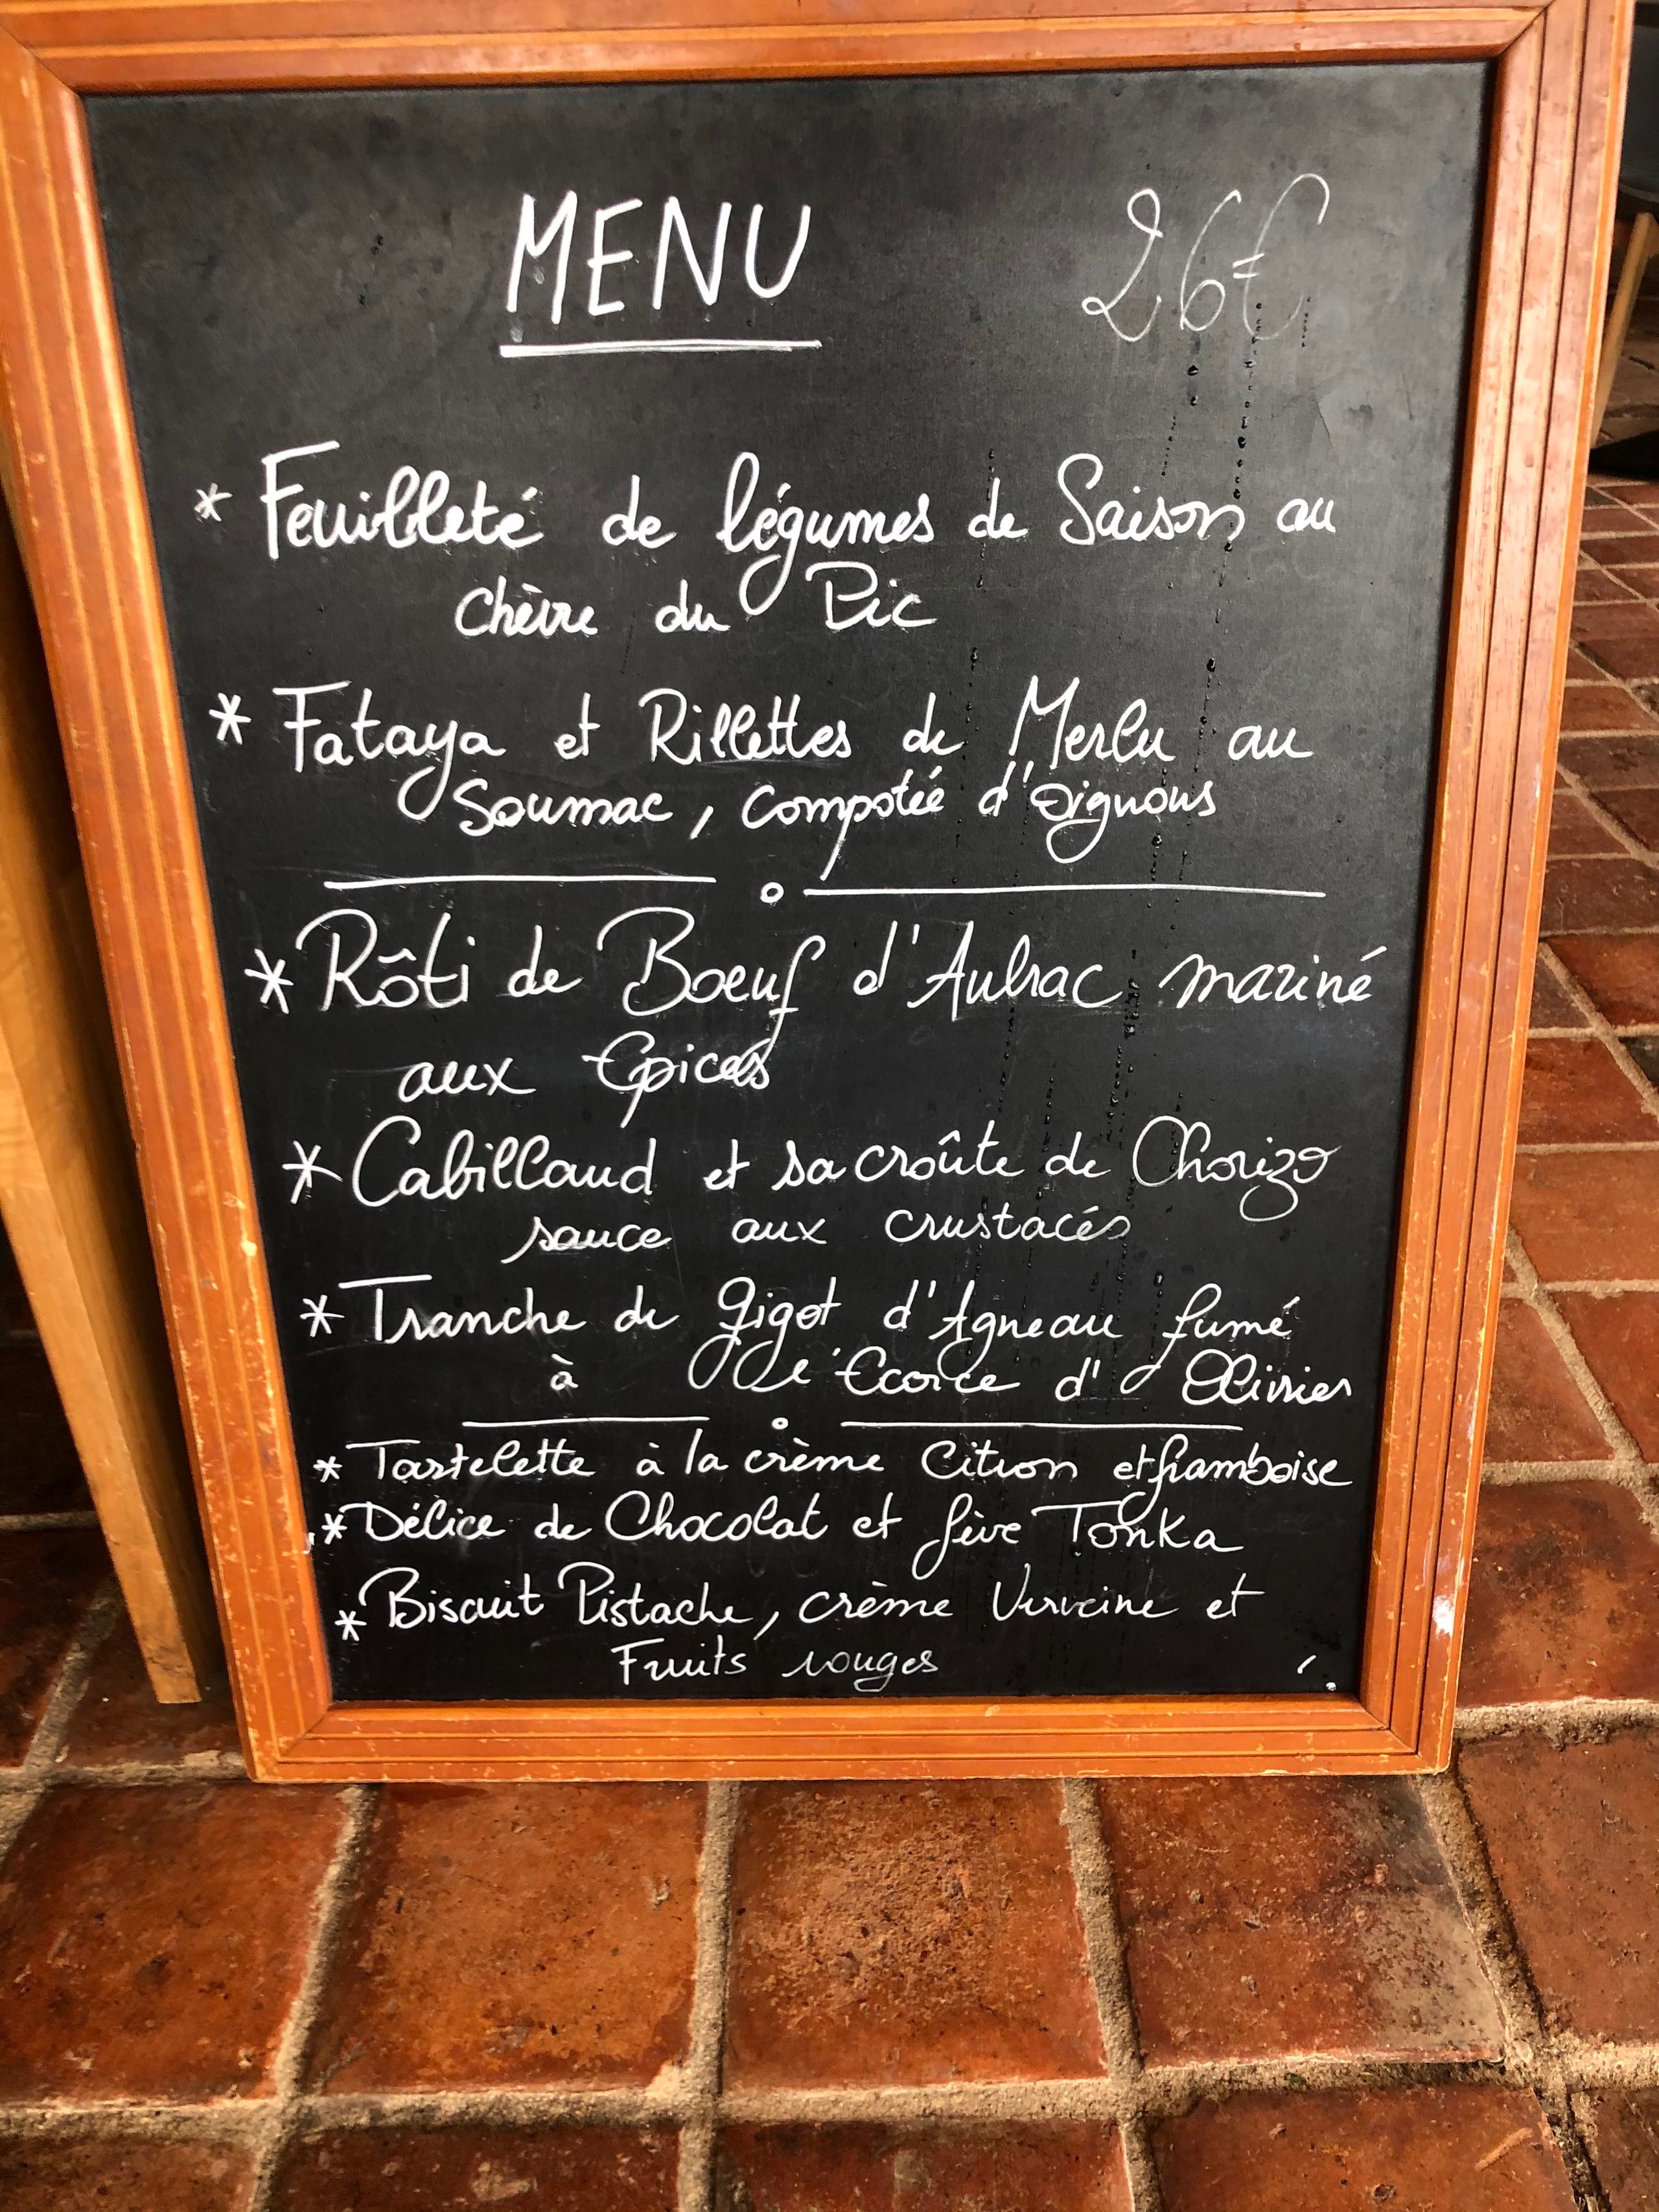 MENU 26€
* Feuilleté de légumes de Saison au
chèvre du Pic
* Fataya et Rillettes de Merlu au
Soumac, compotée d'oignons
* Rôti de Boeuf d'Aubrac mariné
aux Epices
* Cabillaud et sa croûte de Chorizo
sauce aux crustacés
* Tranche de gigot d'Agneau fumé
à l'Ecorce d'Olivier
* Tartelette à la crème Citron et framboise
* Délice de Chocolat et fève Tonka
* Biscuit Pistache, crème Verveine et
Fruits rouges